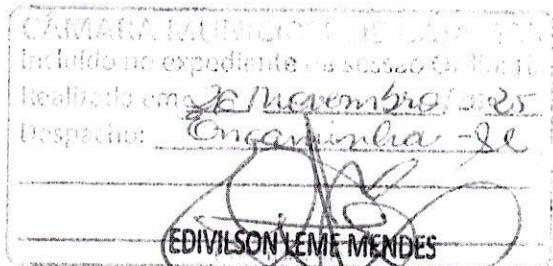 CÂMARA MUNICIPAL DE
Incluído no expediente da sessão
Realizado em novembro 25
Despacho: Encaminha-se
EDIVILSON LEME MENDES